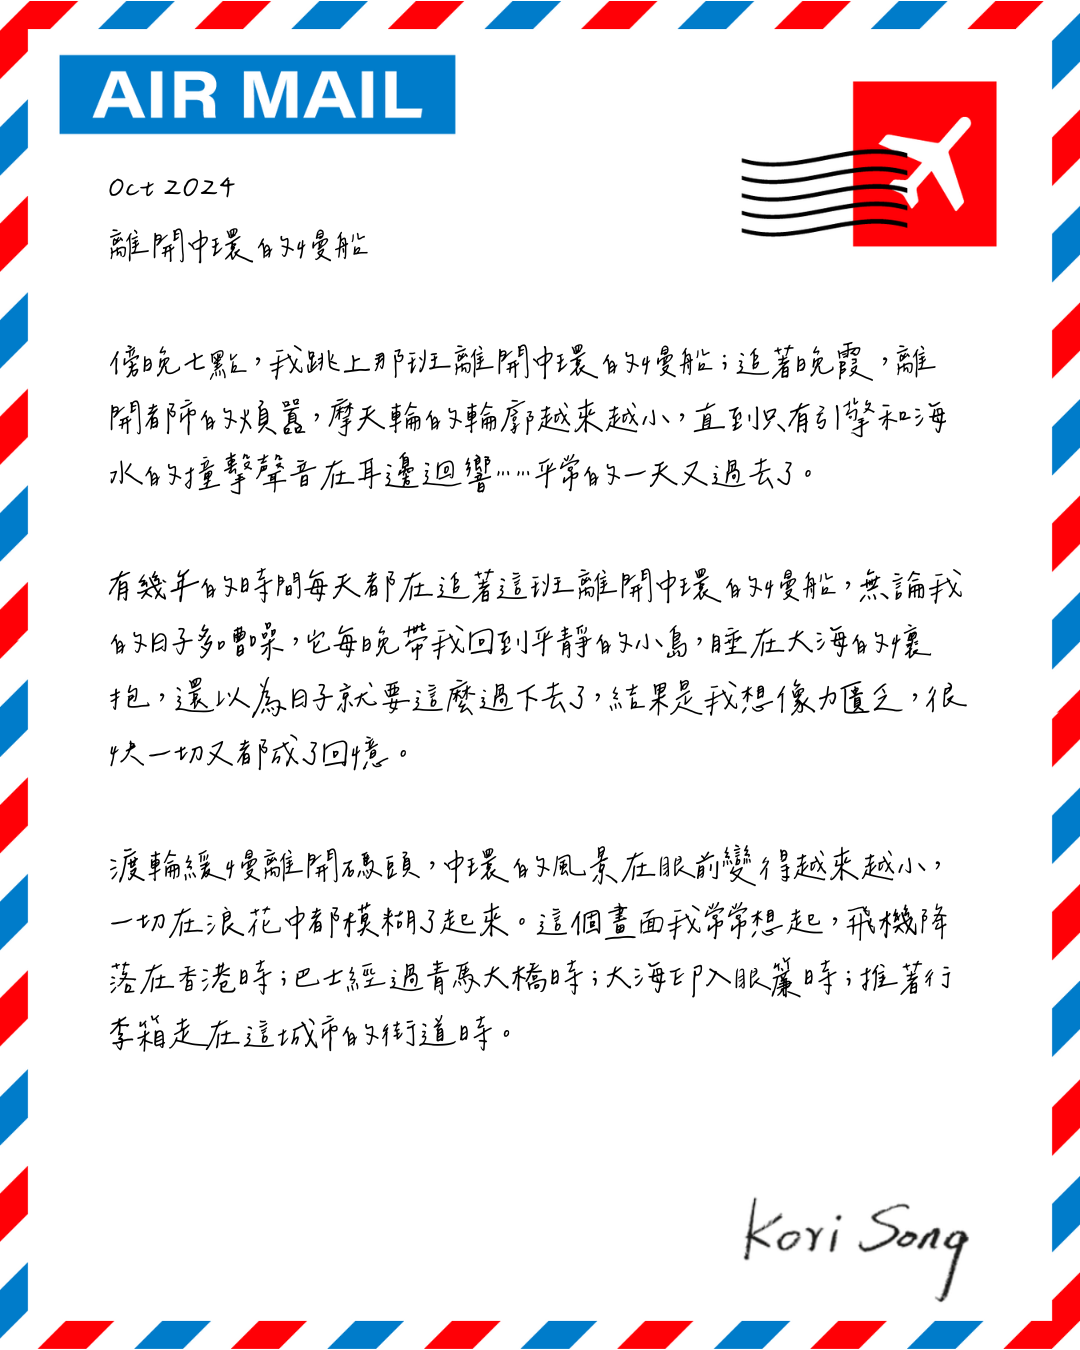 AIR MAIL
Oct 2024
離開中環的慢船
傍晚七點，我跳上那班離開中環的慢船；追著晚霞，離
開都市的煩囂，摩天輪的輪廓越來越小，直到只有引擎和海
水的撞擊聲音在耳邊迴響……平常的一天又過去了。
有幾年的時間每天都在追著這班離開中環的慢船，無論我
的日子多嘈噪，它每晚帶我回到平靜的小島，睡在大海的懷
抱，還以為日子就要這麼過下去了，結果是我想像力匱乏，很
快一切又都成了回憶。
渡輪緩慢離開碼頭，中環的風景在眼前變得越來越小，
一切在浪花中都模糊了起來。這個畫面我常常想起，飛機降
落在香港時；巴士經過青馬大橋時；大海印入眼簾時；推著行
李箱走在這城市的街道時。
Kori Song